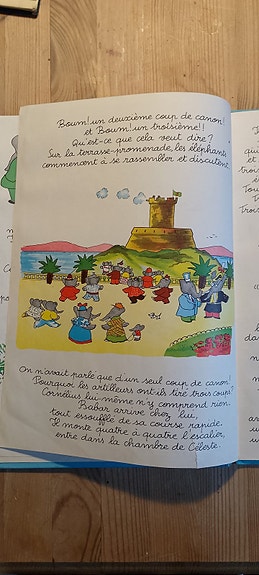 Boum! un deuxième coup de canon!
et Boum! un troisième!!
Qu'est-ce que cela veut dire?
Sur la terrasse-promenade, les éléphants
commencent à se rassembler et discutent.
On n'avait parlé que d'un seul coup de canon!
Pourquoi les artilleurs ont-ils tiré trois coups?
Cornélius lui-même n'y comprend rien.
Babar arrive chez lui,
tout essoufflé de sa course rapide.
Il monte quatre à quatre l'escalier,
entre dans la chambre de Céleste.